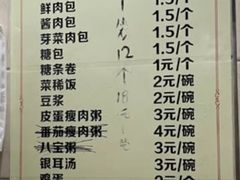 鲜肉包 1.5/个
酱肉包 1.5/个
芽菜肉包 1.5/个
糖包 12 1.5/个
糖条卷 个 1元/个
菜稀饭 2元/碗
豆浆 18元 2元/碗
皮蛋瘦肉粥 3元/碗
番茄瘦肉粥 4元/碗
八宝粥 3元/碗
银耳汤 3元/碗